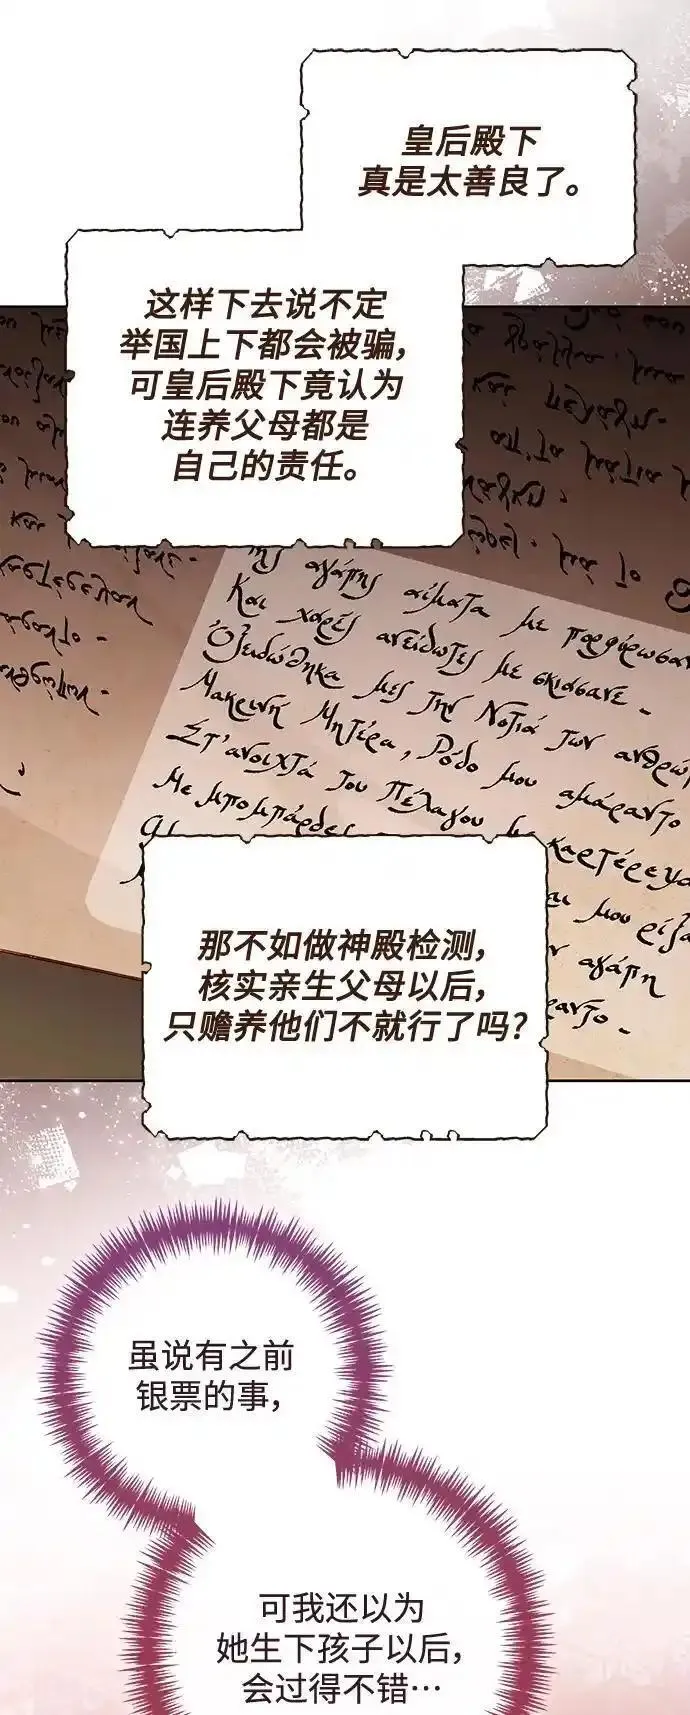 皇后殿下
真是太善良了。
这样下去说不定
举国上下都会被骗，
可皇后殿下竟认为
连养父母都是
自己的责任。
της αγάπης αίματα με πορφύρωσαν
Και χαρές ανείδωτες με σκιάσανε.
Οξειδώθηκα μες την Νοτιά των ανθρώ
Μακρινή Μητέρα, Ρόδο μου αμάραντο
Στ'ανοιχτά του Πέλαγου με καρτέρεψα
Με μπομπάρδες
αι μου ρίξα
ν αγάπη
άραντο.
那不如做神殿检测，
核实亲生父母以后，
只赡养他们不就行了吗？
虽说有之前
银票的事，
可我还以为
她生下孩子以后，
会过得不错…